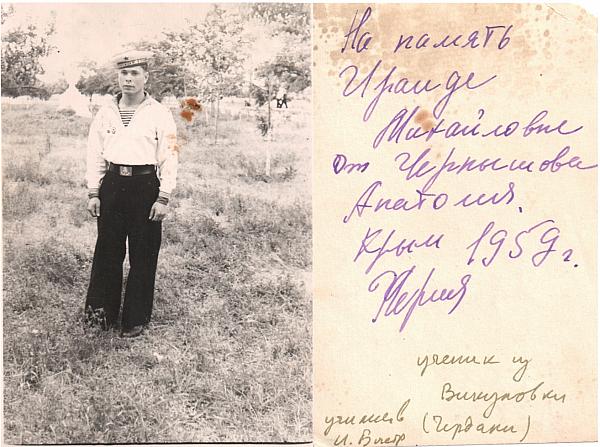 На память
Ираиде
Михайловне
от Чернышова
Анатолия.
Крым 1959 г.
ученик из
Викуловки
(Чердаки)